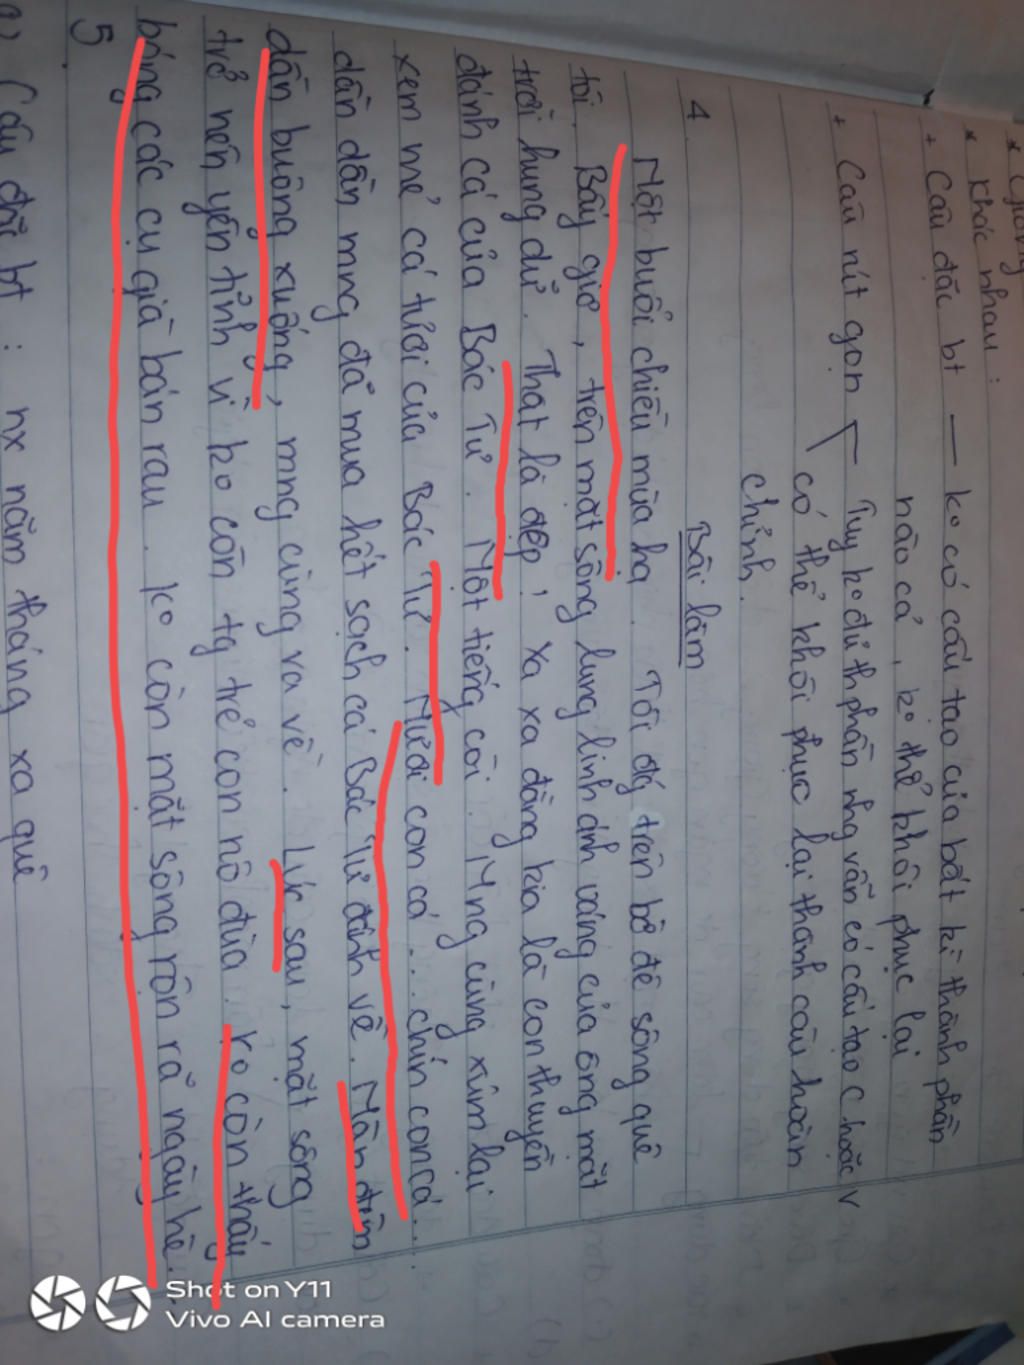 * Giống
* Khác nhau :
+ Câu đặc bt — ko có cấu tạo của bất kì thành phần
nào cả, ko thể khôi phục lại
+ Câu rút gọn Tuy ko đủ th phần nhg vẫn có cấu tạo C hoặc V
có thể khôi phục lại thành câu hoàn
chỉnh.
Bài làm
4.
Một buổi chiều mùa hạ. Tôi đứg trên bờ đê sông quê
tôi. Bây giờ, trên mặt sông lung linh ánh vàng của ông mặt
trời hung dữ. Thật là đẹp, xa xa đằng kia là con thuyền
đánh cá của Bác Tư. Một tiếng còi. Mng cùng xúm lại
xem mẻ cá tươi của Bác Tư. Mười con cá... chín con cá...
dần dần mng đã mua hết sạch cá Bác Tư đánh về. Màn đêm
dần buông xuống, mng cùng ra về. Lúc sau, mặt sông
trở nên yên tĩnh vì ko còn tg trẻ con nô đùa. Ko còn thấy
bóng các cụ già bán rau. Ko còn mặt sông rộn rã ngày hè.
5.
a) Câu đặc bt : nx năm tháng xa quê
Shot on Y11
Vivo AI camera